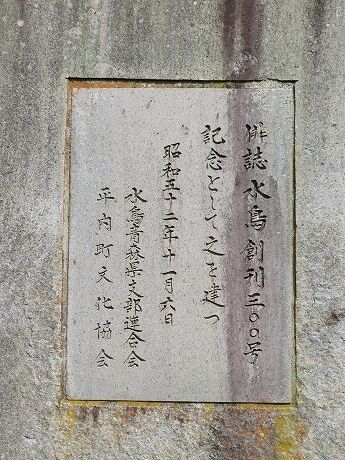 俳誌水鳥創刊三〇〇号
記念として之を建つ
昭和五十二年十一月六日
水鳥青森県支部連合会
平内町文化協会